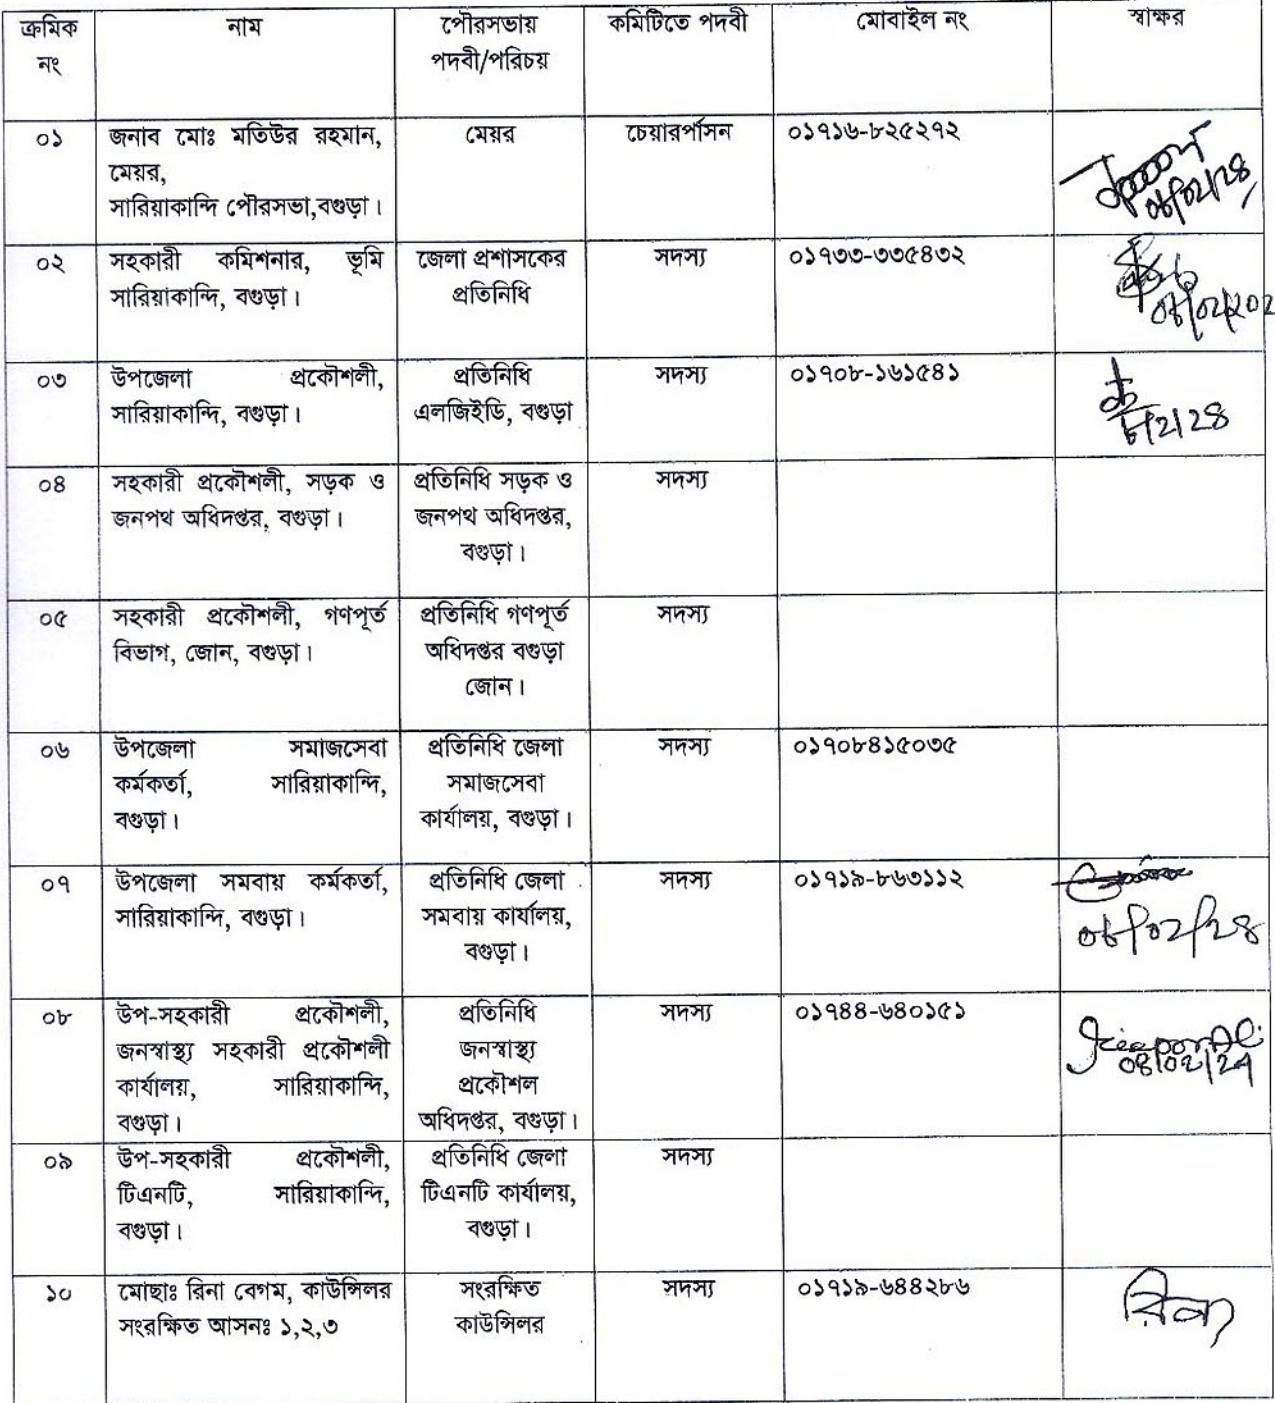 ক্রমিক নং	নাম	পৌরসভায় পদবী/পরিচয়	কমিটিতে পদবী	মোবাইল নং	স্বাক্ষর
০১
জনাব মোঃ মতিউর রহমান,
মেয়র,
সারিয়াকান্দি পৌরসভা,বগুড়া।
মেয়র
চেয়ারর্পাসন
০১৭১৬-৮২৫২৭২
০৮/০২/২৪
০২
সহকারী কমিশনার, ভূমি
সারিয়াকান্দি, বগুড়া।
জেলা প্রশাসকের
প্রতিনিধি
সদস্য
০১৭৩৩-৩৩৫৪৩২
০৩
উপজেলা প্রকৌশলী,
সারিয়াকান্দি, বগুড়া।
প্রতিনিধি
এলজিইডি, বগুড়া
সদস্য
০১৭০৮-১৬১৫৪১
০৪
সহকারী প্রকৌশলী, সড়ক ও
জনপথ অধিদপ্তর, বগুড়া।
প্রতিনিধি সড়ক ও
জনপথ অধিদপ্তর,
বগুড়া।
সদস্য
০৫
সহকারী প্রকৌশলী, গণপূর্ত
বিভাগ, জোন, বগুড়া।
প্রতিনিধি গণপূর্ত
অধিদপ্তর বগুড়া
জোন।
সদস্য
০৬
উপজেলা সমাজসেবা
কর্মকর্তা, সারিয়াকান্দি,
বগুড়া।
প্রতিনিধি জেলা
সমাজসেবা
কার্যালয়, বগুড়া।
সদস্য
০১৭০৮৪১৫০৩৫
০৭
উপজেলা সমবায় কর্মকর্তা,
সারিয়াকান্দি, বগুড়া।
প্রতিনিধি জেলা
সমবায় কার্যালয়,
বগুড়া।
সদস্য
০১৭১৯-৮৬৩১১২
০৮/০২/২৪
০৮
উপ-সহকারী প্রকৌশলী,
জনস্বাস্থ্য সহকারী প্রকৌশলী
কার্যালয়, সারিয়াকান্দি,
বগুড়া।
প্রতিনিধি
জনস্বাস্থ্য
প্রকৌশল
অধিদপ্তর, বগুড়া।
সদস্য
০১৭৪৪-৬৪০১৫১
08/02/24
০৯
উপ-সহকারী প্রকৌশলী,
টিএনটি, সারিয়াকান্দি,
বগুড়া।
প্রতিনিধি জেলা
টিএনটি কার্যালয়,
বগুড়া।
সদস্য
১০
মোছাঃ রিনা বেগম, কাউন্সিলর
সংরক্ষিত আসনঃ ১,২,৩
সংরক্ষিত
কাউন্সিলর
সদস্য
০১৭১৯-৬৪৪২৮৬
রিনা